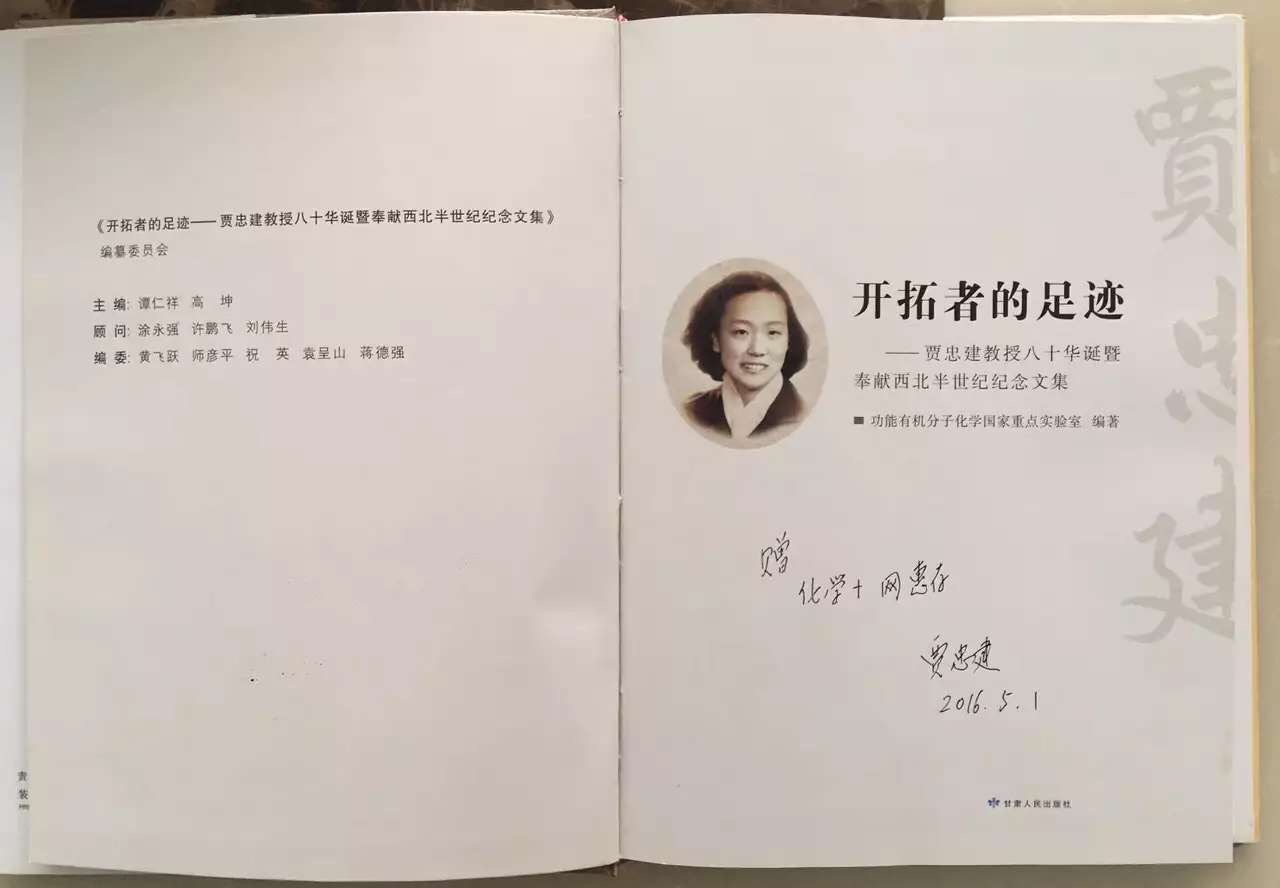 《开拓者的足迹——贾忠建教授八十华诞暨奉献西北半世纪纪念文集》
编纂委员会
主 编: 谭仁祥 高 坤
顾 问: 涂永强 许鹏飞 刘伟生
编 委: 黄飞跃 师彦平 祝 英 袁呈山 蒋德强
责
装
贾忠建
开拓者的足迹
——贾忠建教授八十华诞暨
奉献西北半世纪纪念文集
■ 功能有机分子化学国家重点实验室 编著
赠
化学+网惠存
贾忠建
2016.5.1
甘肃人民出版社